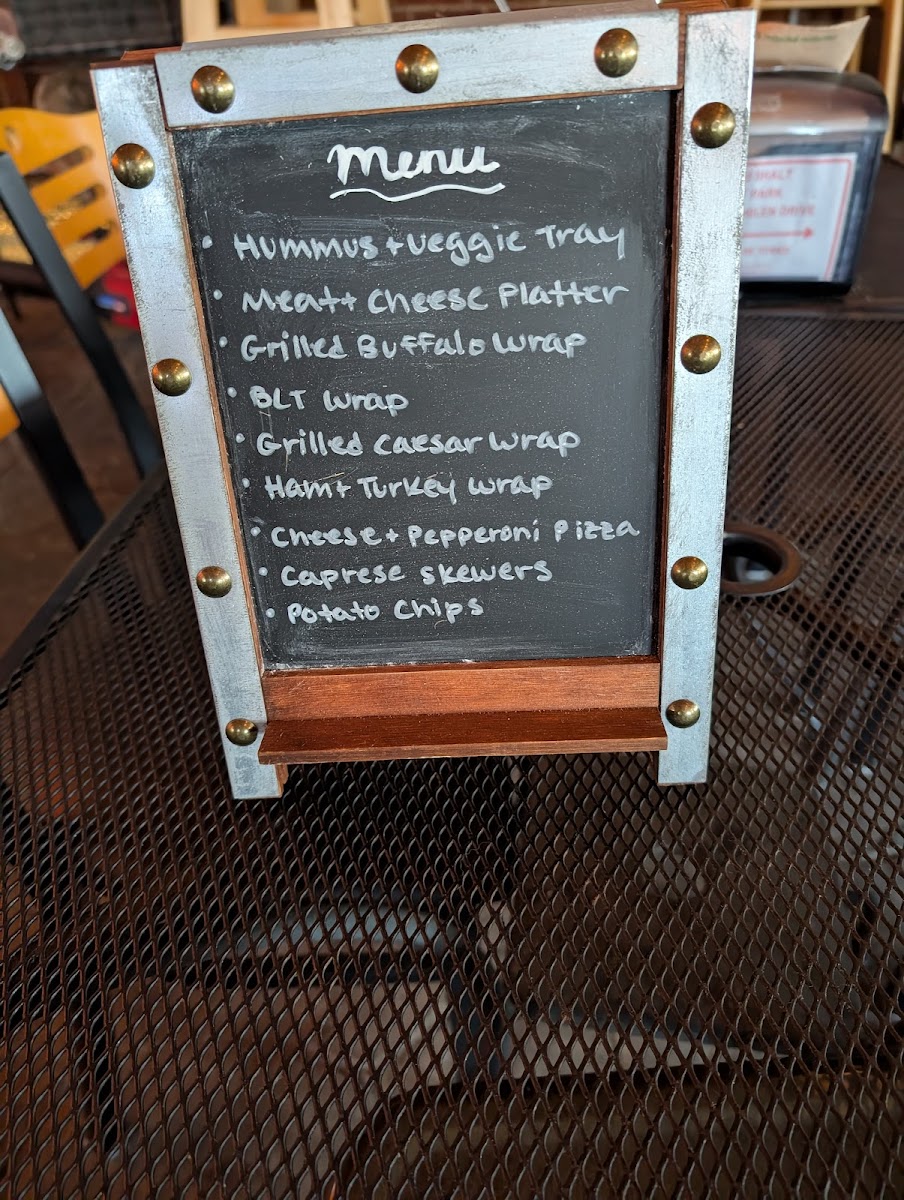 Menu
• Hummus + Veggie Tray
• Meat + Cheese Platter
• Grilled Buffalo Wrap
• BLT Wrap
• Grilled Caesar Wrap
• Ham + Turkey Wrap
• Cheese + Pepperoni Pizza
• Caprese Skewers
• Potato Chips
PARK